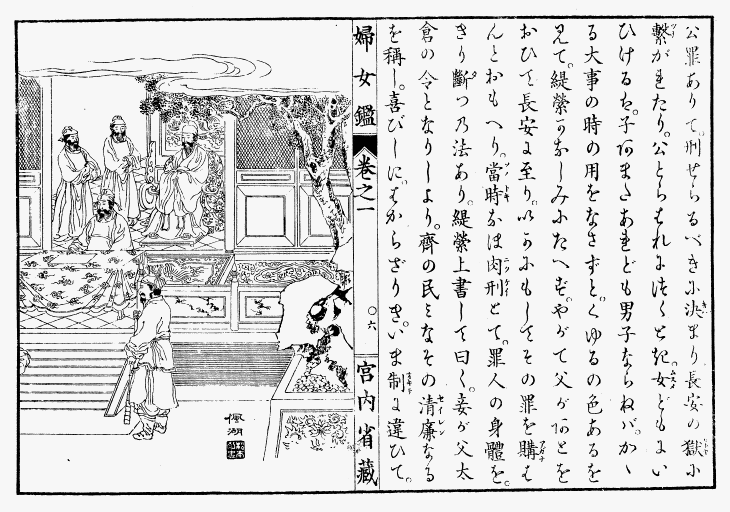 公罪ありて。刑せらるべきに決まり長安の獄に
繋がれたり。公とらはれにつくとき。女どもにい
ひけるは。子あまたあれども男子ならねば。かゝ
る大事の時の用をなさずと。くゆるの色あるを
見て。緹縈かなしみにたへず。やがて父があとを
おひて長安に至り。いかにもしてその罪を贖は
んとおもへり。當時なほ肉刑とて。罪人の身體を。
きり斷つの法あり。緹縈上書して曰く。妾が父太
倉の令となりしより。齊の民みなその清廉なる
を稱し。喜びしに。はからざりき。いま制に違ひて。
婦女鑑 卷之一 〇六 宮内省藏
佩湖